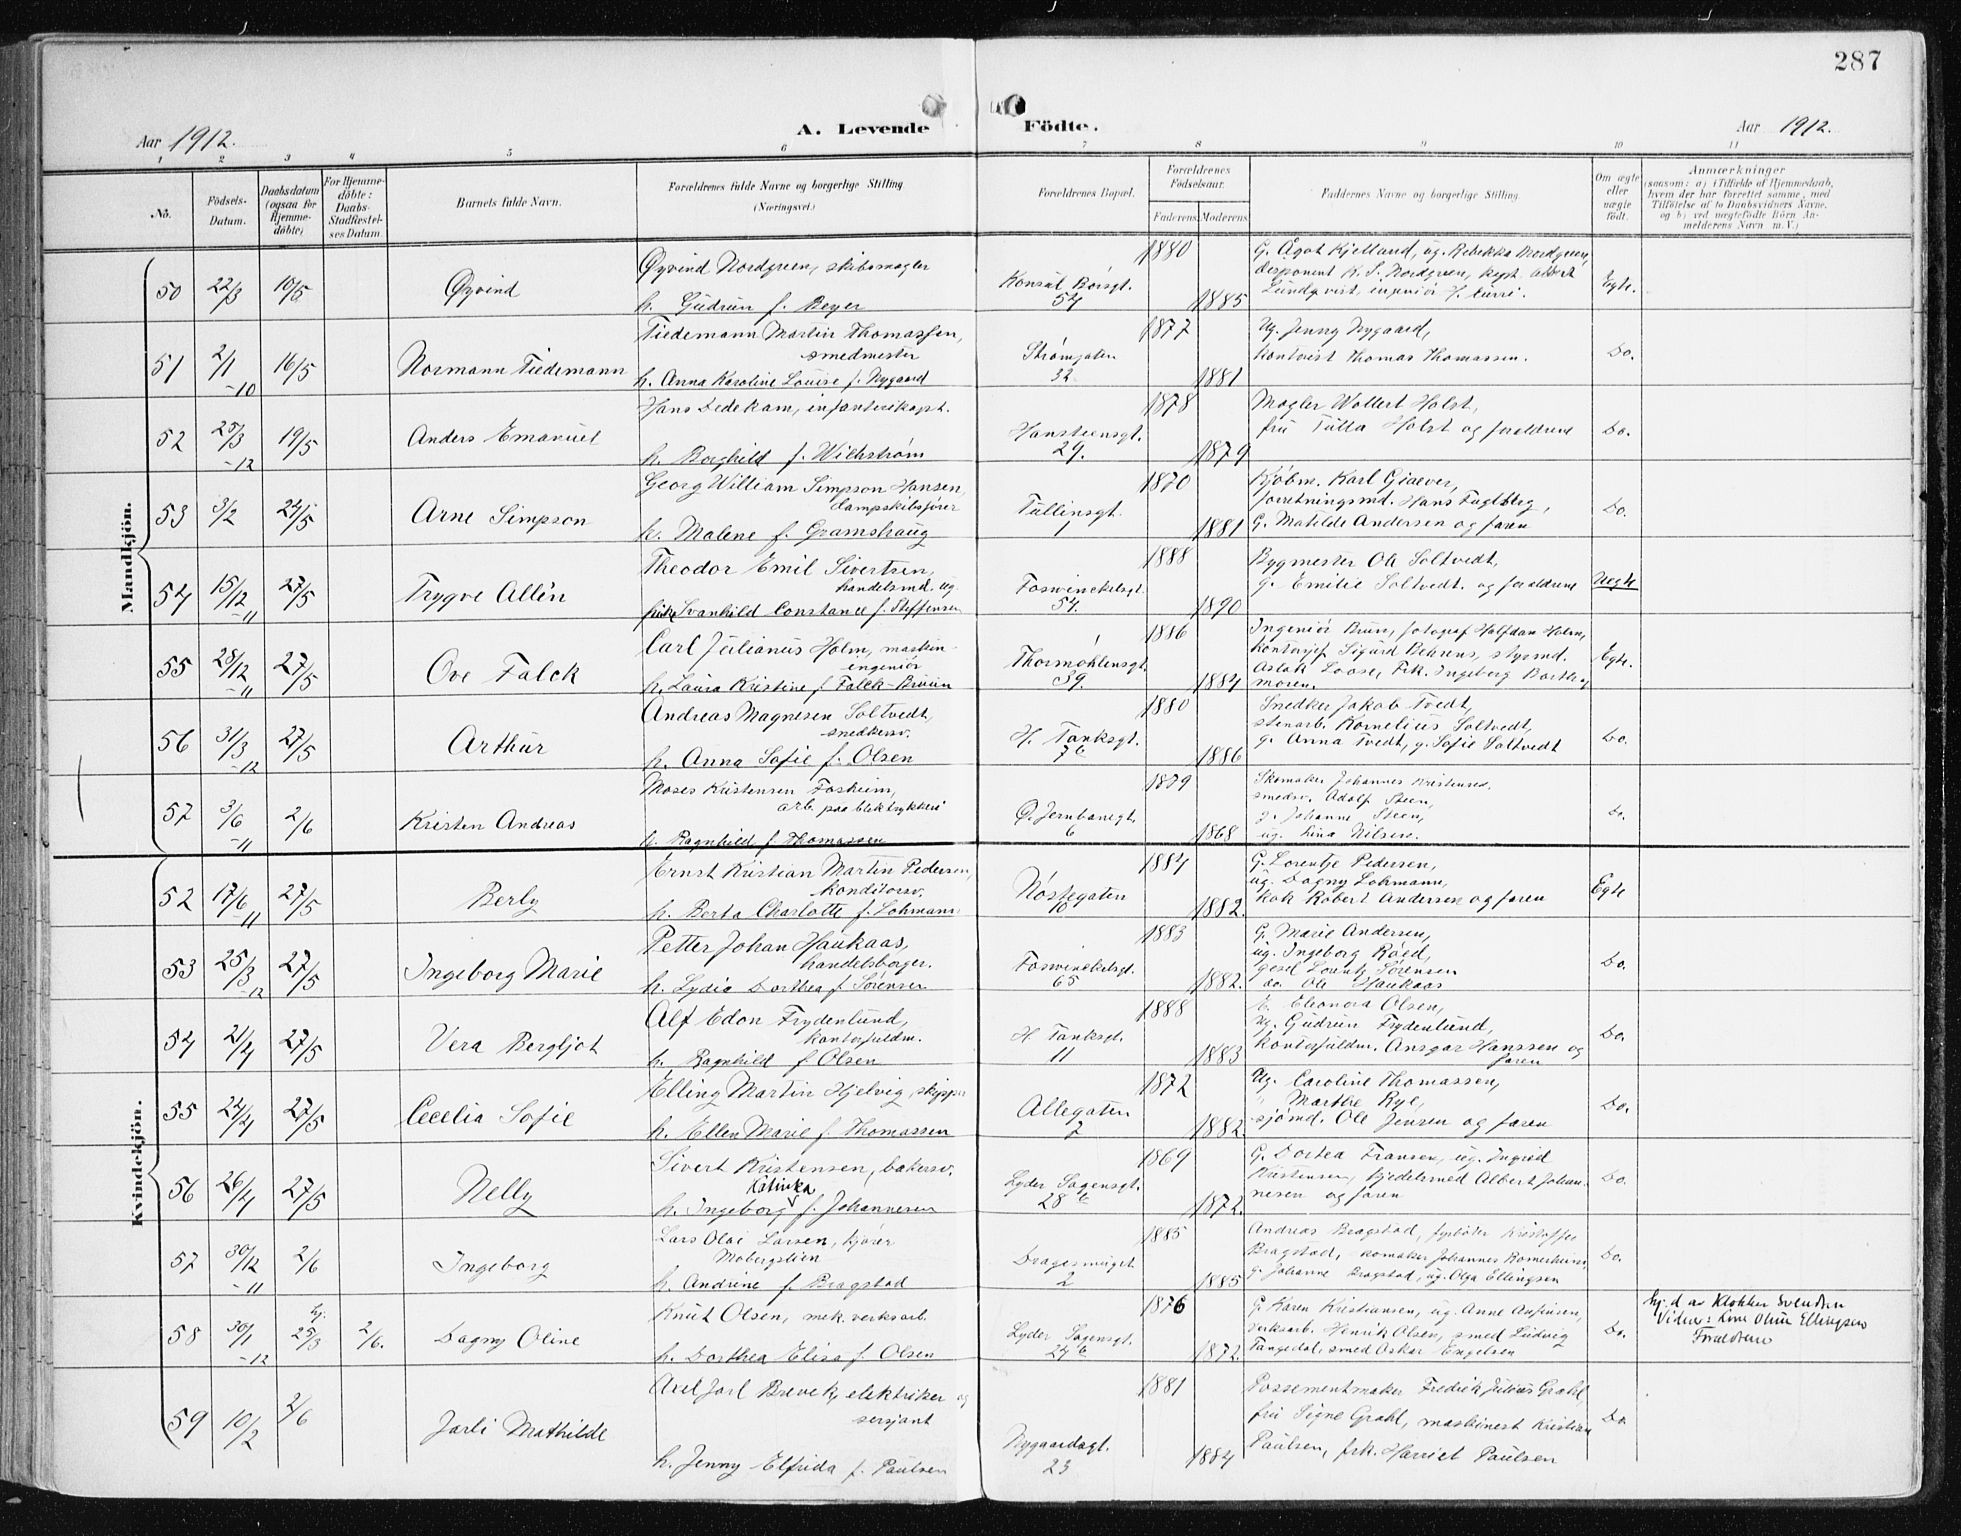 287
Aar 1912.
A. Levende Födte.
Aar 1912.
1 2 3 4 5 6 7 8 9 10 11
No.
Födsels-
Datum.
Daabsdatum
(ogsaa for
Hjemme-
döbte)
For Hjemme-
döbte:
Daabs-
Stadfæstel-
ses Datum
Barnets fulde Navn.
Forældrenes fulde Navne og borgerlige Stilling
(Næringsvei.)
Forældrenes Bopæl.
Forældrenes
Födselsaar.
Faderens Moderens
Faddernes Navne og borgerlige Stilling.
Om ægte
eller
uægte
födt.
Anmærkninger
(saasom: a) i Tilfælde af Hjemmedaab,
hvem der har forrettet samme, med
Tilföielse af to Daabsvidners Navne,
og b) ved uægtefödte Börn An-
melderens Navn m. V.)
Mandkjön.
50 22/3 10/5 Øyvind
Øyvind Nordgreen, skibsmægler
h. Gudrun f. Beyer
Konsul Børsgt.
54
1880
1885
G. Ågot Kjelland, ug. Rebekka Nordgreen,
disponent K. S. Nordgreen, kapt.
Lundqvist, ingeniør H.
Egte.
51 2/1 -10 16/5 Normann Tiedemann
Tiedemann Martin Thomassen,
smedmester
h. Anna Karoline Louise f. Nygaard
Strømgaten
32
1877
1881
Ug. Jenny Nygaard,
kontorist Thomas Thomassen.
Do.
52 25/3 -12 19/5 Anders Emanuel
Hans Dedekam, infanterikapt.
h. Borghild f. Wichstrøm
Hansteensgt.
29.
1878
1879
Mægler Wollert Holst,
fru Tulla Holst og forældrene
Do.
53 3/2 24/5 Arne Simpson
Georg William Simpson Hansen,
dampskibsfører
h. Malene f. Gramshaug
Tullinsgt.
1
1870
1881
Kjøbm. Karl Giæver,
forretningsmd. Hans Fuglberg,
G. Matilde Andersen og faren
Do.
54 15/12 -11 27/5 Trygve Allén
Theodor Emil Sivertsen,
handelsmd. ug.
pike Svanhild Constance f. Steffensen
Fosvinckelsgt.
54.
1888
1890
Bygmester Ole Soltvedt,
g. Emilie Soltvedt og forældrene
Uegte
55 28/12 -11 27/5 Ove Falck
Carl Julianus Holm, maskin-
engeniør
h. Laura Kristine f. Falck-Bruun
Thormøhlensgt.
39.
1886
1884
Ingeniør Brun, fotograf Halfdan Holm,
kontorsjef Sigurd Behrens, styrmd.
Aslak Loose, Frk. Ingeborg
moren.
Egte.
56 31/3 -12 27/5 Arthur
Andreas Magnesen Soltvedt,
snedkersv.
h. Anna Sofie f. Olsen
H. Tanksgt.
7b
1880
1886
Snedker Jakob Tvedt,
stenarb. Kornelius Soltvedt,
g. Anna Tvedt, g. Sofie Soltvedt
Do.
57 3/6 -11 2/6 Kristen Andreas
Moses Kristensen Fosheim,
arb. paa bliktrykkeri
h. Ragnhild f. Thomassen
Ø. Jernbanegt.
6
1879
1868
Skomaker Johannes Kristensen,
smedsv. Adolf Steen,
g. Johanne Steen,
ug. Lina Nilsen.
Do.
Kvindekjön.
52 17/6 -11 27/5 Berly
Ernst Kristian Martin Pedersen,
konditorsv.
h. Berta Charlotte f. Lohmann
Nøstegaten
10
1884
1882.
G. Lorentje Pedersen,
ug. Dagny Lohmann,
kok Robert Andersen og faren
Egte
53 25/3 -12 27/5 Ingeborg Marie
Petter Johan Haukaas,
handelsborger.
h. Lydia Dorthea f. Sørensen
Fosvinckelsgt.
65
1883
1882.
G. Marie Andersen,
ug. Ingeborg Røed,
gesel Lorentz Sørensen
do. Ole Haukaas
Do.
54 21/4 27/5 Vera Bergljot
Alf Edon Frydenlund,
kontorfuldm.
h. Ragnhild f. Olsen
H. Tanksgt.
11
1888
1883
E. Eleonora Olsen,
Ug. Gudrun Frydenlund,
kontorfuldm. Ansgar Hanssen og
faren
Do.
55 24/4 27/5 Cecelia Sofie
Elling Martin Hjelvig, skipper
h. Ellen Marie f. Thomassen
Allegaten
7
1872
1882.
Ug. Caroline Thomassen,
" Marthe Rye,
sjømd. Ole Jensen og faren
Do.
56 26/4 27/5 Nelly
Sivert Kristensen, bakersv.
Katinka
h. Ingeborg f. Johannesen
Lyder Sagensgt.
28 b
1869
1872.
G. Dortea Fransen, ug. Ingrid
Kristensen, kjedelsmed Albert Johan-
nesen og faren
Do.
57 30/12 -11 2/6 Ingeborg
Lars Olai Larsen, kjører
Mobergslien
h. Andrine f. Bragstad
Dragesmuget
2
1885
1885
Andreas Bragstad, fyrbøter Kristoffer
Bragstad, skomaker Johannes Romerheim,
g. Johanne Bragstad, ug. Olga Ellingsen
Do.
58 30/1 -12 hj. 25/3 2/6. Dagny Oline
Knut Olsen, mek. verksarb.
h. Dorthea Elisa f. Olsen
Lyder Sagensgt.
24 b
1876
1872.
G. Karen Kristiansen, ug. Anne
verksarb. Henrik Olsen, smed Ludvig
Tangedal, smed Oskar Engelsen
Do.
hj. d. av Klokker Svendsen
Vidner: Oline Ellingsen
Forældrene
59 10/2 2/6 Jarli Mathilde
Axel Jarl Brevek, elektriker og
sersjant
h. Jenny Elfrida f. Paulsen
Nygaardsgt.
23
1881
1884
Possementmaker Fredrik Julius Grahl,
fru Signe Grahl, maskinest Kristian
Paulsen, frk. Harriet Paulsen
Do.